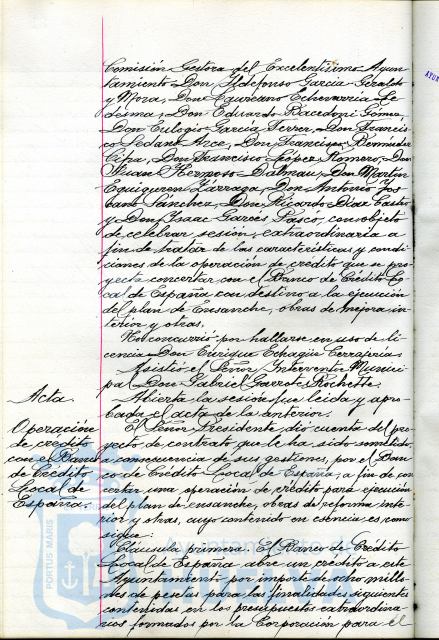 Comisión Gestora del Excelentísimo Ayun-
tamiento Don Ildefonso García Giraldo
y Mora, Don Laureano Echevarria Le-
desma, Don Eduardo Racedoni Gómez
Don Eulogio García Ferrer, Don Francis-
co Sedano Arce, Don Francisco Bermudez
Don Francisco López Romero, Don
Hermoso Dalmau, Don Martín
Eguiguren Zarraga, Don Antonio
Sánchez, Don Ricardo Diaz Castro
y Don Isaac Garcés Pascó, con objeto
de celebrar sesión extraordinaria a
fin de tratar de las características y condi-
ciones de la operación de credito que se pro-
yecta concertar con el Banco de Crédito Lo-
cal de España con destino a la ejecución
del plan de Ensanche, obras de mejora in-
terior y otras.
No concurrió por hallarse en uso de li-
cencia Don Enrique Echagüe Cerraperia
Asistió el Señor Interventor Munici-
pal Don Gabriel Garrote Rochette.
Acta.
Abierta la sesión fue leida y apro-
bada el acta de la anterior.
Operación
de crédito
con el Banco
de Crédito
Local de
España.
El Señor Presidente dió cuenta del pro-
yecto de contrato que le ha sido sometido,
a consecuencia de sus gestiones, por el Ban-
co de Crédito Local de España, a fin de con-
certar una operación de crédito para ejecución
del plan de ensanche, obras de reforma inte-
rior y otras, cuyo contenido en esencia es como
sigue:
Clausula primera. El Banco de Crédito
Local de España abre un credito a este
Ayuntamiento por importe de ocho millo-
nes de pesetas para las finalidades siguientes
contenidas en los presupuestos extraordina-
rios formados por la Corporación para el
Ayuntamiento de
PORTUS MARIS
AYUN